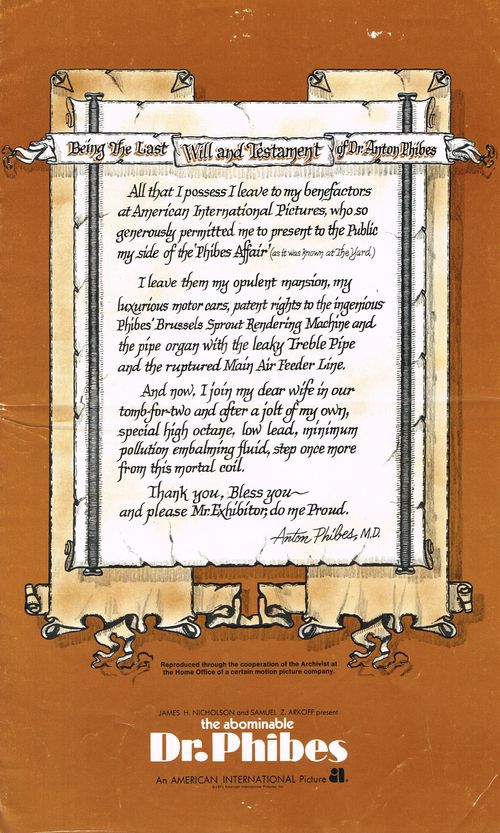 Being The Last Will and Testament of Dr. Anton Phibes
All that I possess I leave to my benefactors
at American International Pictures, who so
generously permitted me to present to the Public
my side of the 'Phibes Affair' (as it was known at The Yard)
I leave them my opulent mansion, my
luxurious motor cars, patent rights to the ingenious
Phibes' Brussels Sprout Rendering Machine and
the pipe organ with the leaky Treble Pipe
and the ruptured Main Air Feeder Line.
And now, I join my dear wife in our
tomb-for-two and after a jolt of my own,
special high octane, low lead, minimum
pollution embalming fluid, step once more
from this mortal coil.
Thank you, Bless you~
and please Mr. Exhibitor, do me Proud.
Anton Phibes, M.D.
Reproduced through the cooperation of the Archivist at
the Home Office of a certain motion picture company.
JAMES H. NICHOLSON and SAMUEL Z. ARKOFF present
the abominable
Dr. Phibes
An AMERICAN INTERNATIONAL Picture ai®
©1971 American International Pictures, Inc.